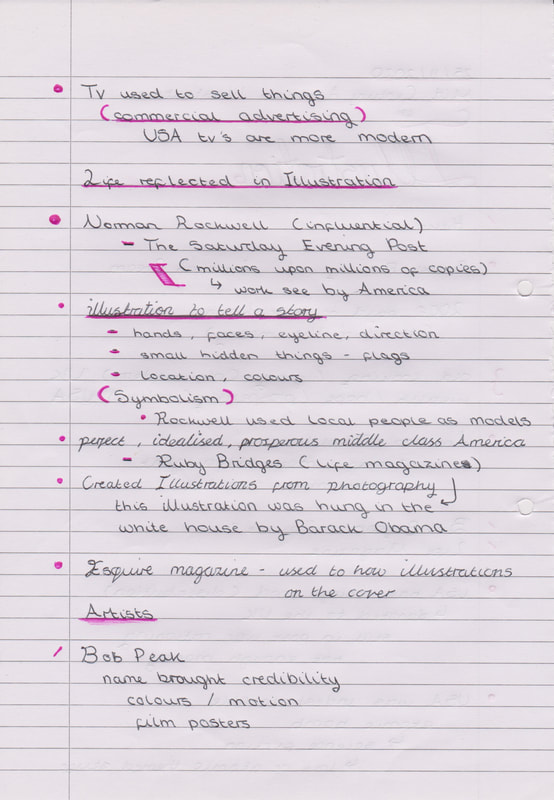 Tv used to sell things
(commercial advertising)
USA tv's are more modern
Life reflected in Illustration
Norman Rockwell (influential)
- The Saturday Evening Post
(millions upon millions of copies)
↳ work see by America
illustration to tell a story
- hands, faces, eyeline, direction
- small hidden things - flags
- location, colours
(Symbolism)
• Rockwell used local people as models
• perfect, idealised, prosperous middle class America
- Ruby Bridges (Life magazines)
• Created Illustrations from photography
this illustration was hung in the
white house by Barack Obama
• Esquire magazine - used to how illustrations
on the cover
Artists
/ Bob Peak
name brought credibility
colours / motion
film posters